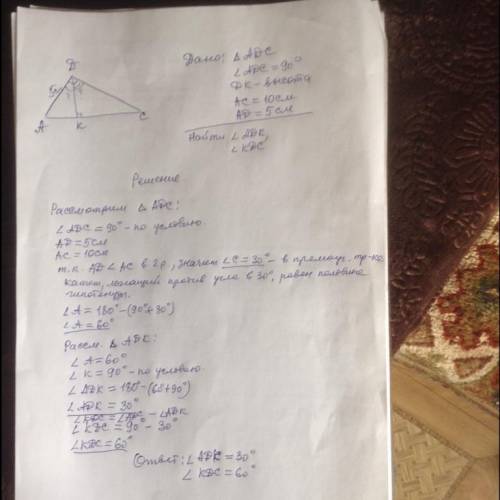 D
5см
A
K
C
Дано: △ ADC
∠ ADC = 90°
DK - высота
AC = 10см
AD = 5см
Найти ∠ ADK,
∠ KDC
Решение.
Рассмотрим △ ADC:
∠ ADC = 90° - по условию.
AD = 5см
AC = 10см
т.к. AD < AC в 2р, значит ∠C = 30° - в прямоуг. тр-ке
катет, лежащий против угла в 30°, равен половине
гипотенузы.
∠ A = 180° - (90° + 30°)
∠ A = 60°
Рассм. △ ADK:
∠ A = 60°
∠ K = 90° - по условию.
∠ ADK = 180° - (60 + 90°)
∠ ADK = 30°
∠ KDC = ∠ADC - ∠ADK
∠ KDC = 90° - 30°
∠KDC = 60°
Ответ: ∠ ADK = 30°
∠ KDC = 60°